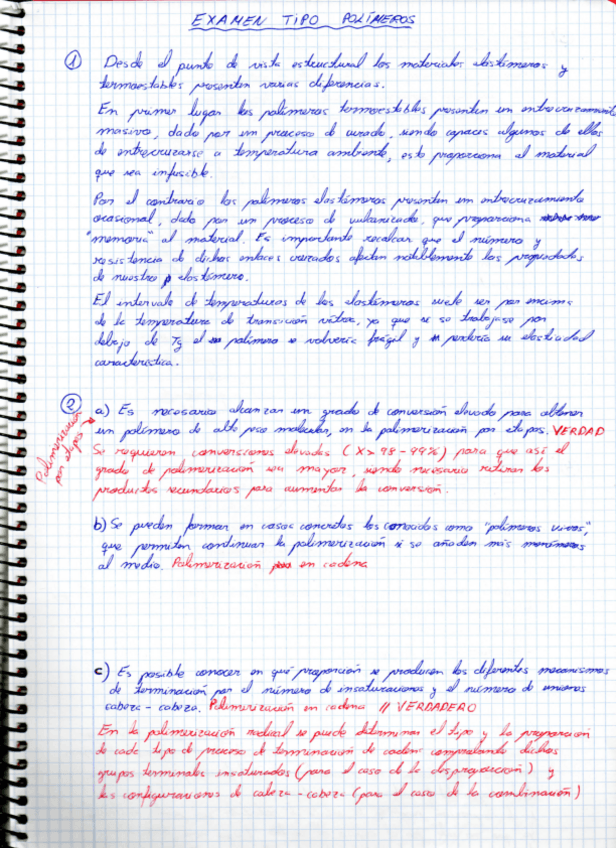 EXAMEN TIPO POLÍMEROS
① Desde el punto de vista estructural los materiales elastómeros y
termoestables presentan varias diferencias.
En primer lugar los polímeros termoestables presentan un entrecruzamiento
masivo, dado por un proceso de curado, siendo capaces algunos de ellos
de entrecruzarse a temperatura ambiente, esto proporciona al material
que sea infusible.
Por el contrario los polímeros elastómeros presentan un entrecruzamiento
ocasional, dado por un proceso de vulcanizado, que proporciona
"memoria" al material. Es importante recalcar que el número y
resistencia de dichos enlaces cruzados afectan notiblemente las propiedades
de nuestro elastómero.
El intervalo de temperaturas de los elastómeros suele ser por encima
de la temperatura de transición vítrea, ya que si se trabajase por
debajo de Tg el polímero se volvería frágil y perdería su elasticidad
característica.
② a) Es necesario alcanzar un grado de conversión elevado para obtener
un polímero de alto peso molecular, en la polimerización por etapas. VERDAD
Polimerización
por etapas
Se requieren conversiones elevadas (X> 98-99%) para que así el
grado de polimerización sea mayor, siendo necesario retirar los
productos secundarios para aumentar la conversión.
b) Se pueden formar en casos concretos los conocidos como "polímeros vivos",
que permiten continuar la polimerización si se añaden más monómeros
al medio. Polimerización en cadena
c) Es posible conocer en qué proporción se producen los diferentes mecanismos
de terminación por el número de insaturaciones y el número de uniones
cabeza-cabeza. Polimerización en cadena // VERDADERO
En la polimerización radical se puede determinar el tipo y la proporción
de cada tipo de proceso de terminación de cadena comprobando dichos
grupos terminales insaturados (para el caso de la desproporción) y
las configuraciones de cabeza-cabeza (para el caso de la combinación)